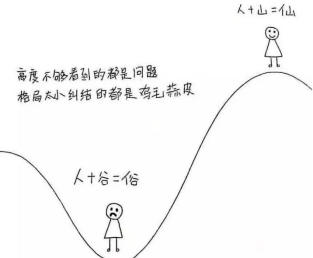 人+山=仙
高度不够看到的都是问题
格局太小纠结的都是鸡毛蒜皮
人+谷=俗